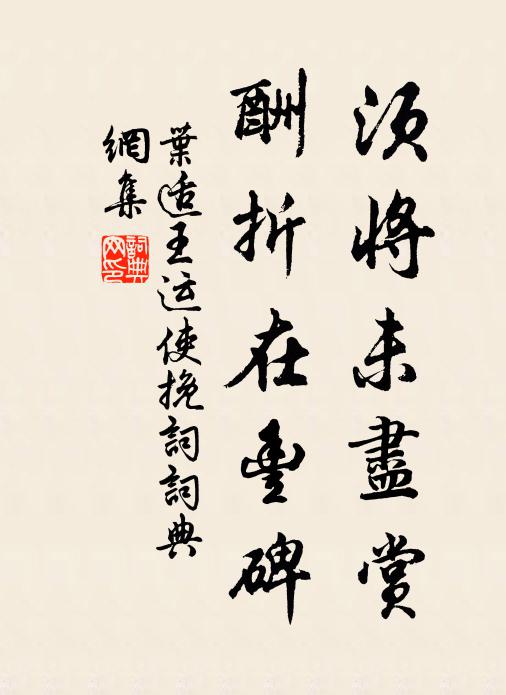 须將未盡賞
酬折在豐碑
葉适王运使挽詞詞典
網集
詞典
网印